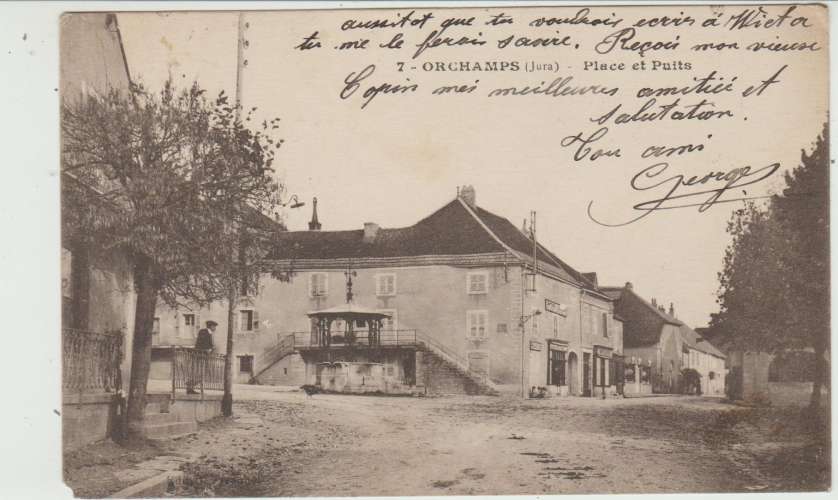 aussitot que tu voudrais ecris à Victor
tu me le ferais savoire. Reçois mon vieuse
7 - ORCHAMPS (Jura) - Place et Puits
Copin mes meilleures amitiée et
salutation.
Ton ami
George